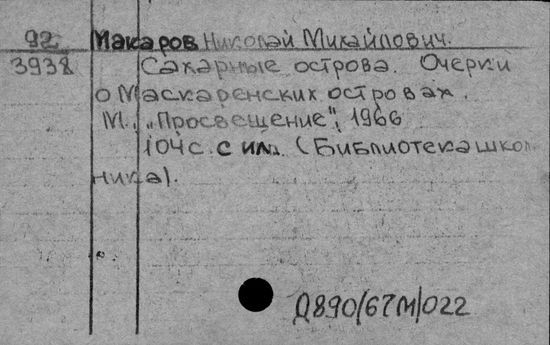 92 Макаров Николай Михайлович.
3938 Сахарные острова. Очерки
о Маскаренских островах.
М., „Просвещение", 1966
104 с. с ил. (Библиотека школь
ника).
Д890/67М/022